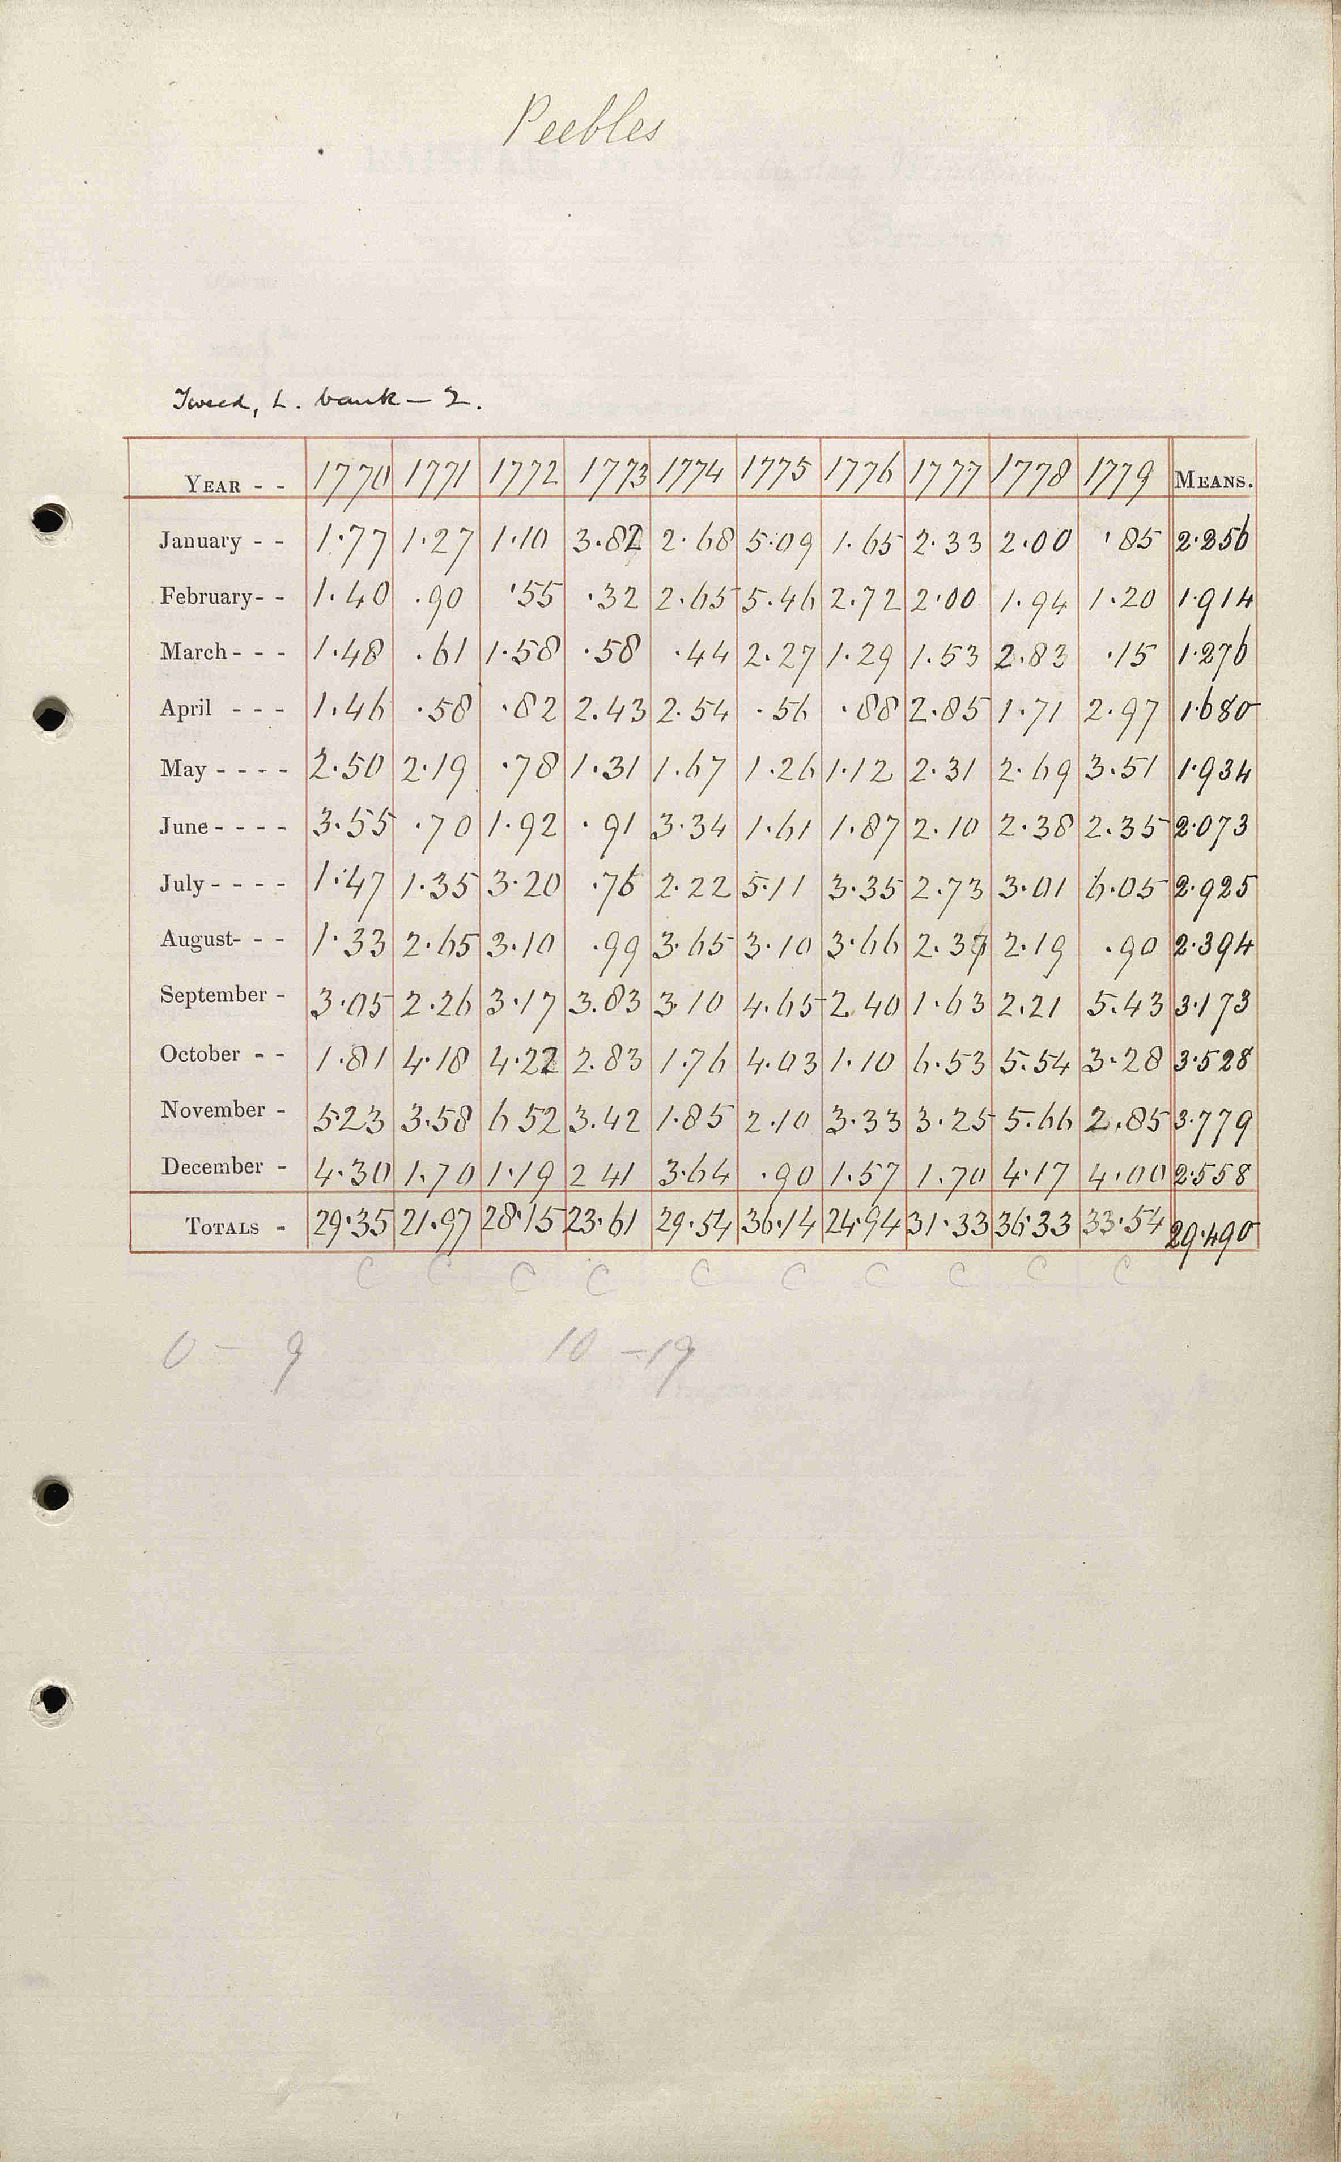 Peebles
Tweed, L. bank — 2.
YEAR - - 1770 1771 1772 1773 1774 1775 1776 1777 1778 1779 MEANS.
January - - 1·77 1·27 1·10 3·82 2·68 5·09 1·65 2·33 2·00 ·85 2·256
February- - 1·40 ·90 ·55 ·32 2·65 5·46 2·72 2·00 1·94 1·20 1·914
March- - - 1·48 ·61 1·58 ·58 ·44 2·27 1·29 1·53 2·83 ·15 1·276
April - - - 1·46 ·58 ·82 2·43 2·54 ·56 ·88 2·85 1·71 2·97 1·680
May - - - - 2·50 2·19 ·78 1·31 1·67 1·26 1·12 2·31 2·69 3·51 1·934
June - - - - 3·55 ·70 1·92 ·91 3·34 1·61 1·87 2·10 2·38 2·35 2·073
July - - - - 1·47 1·35 3·20 ·76 2·22 5·11 3·35 2·73 3·01 6·05 2·925
August- - - 1·33 2·65 3·10 ·99 3·65 3·10 3·66 2·37 2·19 ·90 2·394
September - 3·05 2·26 3·17 3·83 3·10 4·65 2·40 1·63 2·21 5·43 3·173
October - - 1·81 4·18 4·22 2·83 1·76 4·03 1·10 6·53 5·54 3·28 3·528
November - 5·23 3·58 6 52 3·42 1·85 2·10 3·33 3·25 5·66 2·85 3·779
December - 4·30 1·70 1·19 2 41 3·64 ·90 1·57 1·70 4·17 4·00 2·558
TOTALS - 29·35 21·97 28·15 23·61 29·54 36·14 24·94 31·33 36·33 33·54 29·490
C C C C C C C C C C
0 - 9 10 - 19